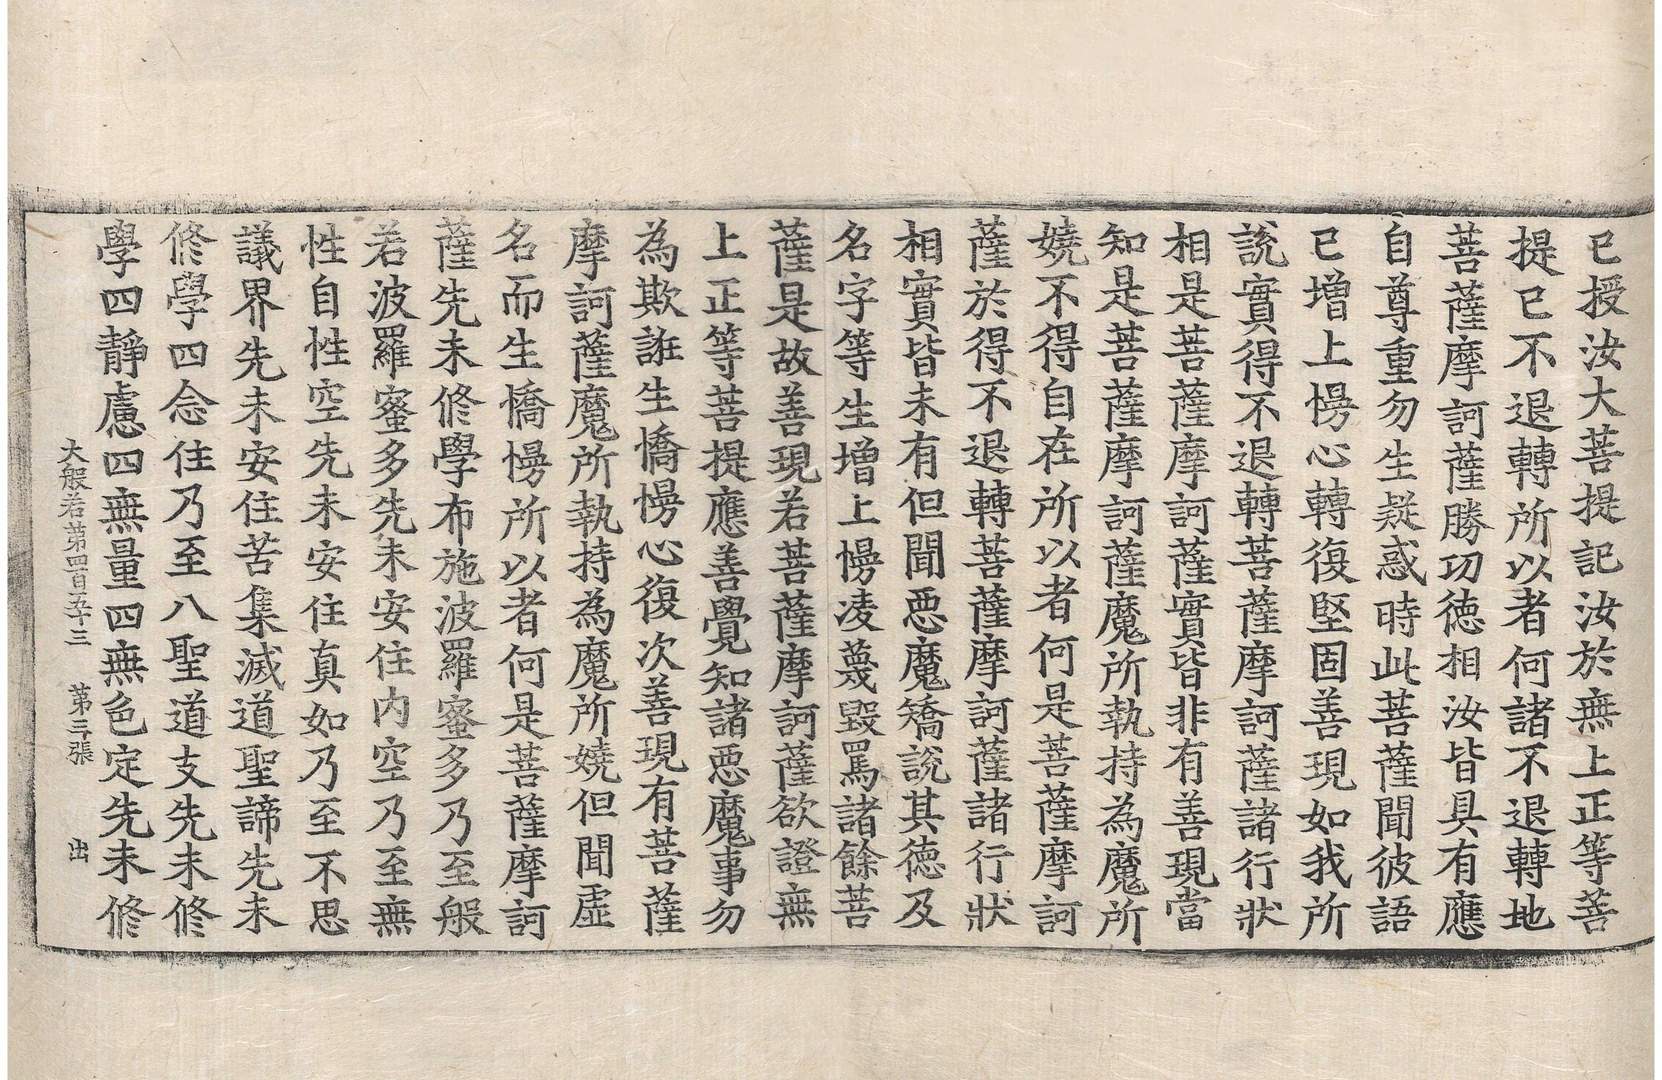 已授汝大菩提記汝於無上正等菩
提已不退轉所以者何諸不退轉地
菩薩摩訶薩勝功德相汝皆具有應
自尊重勿生疑惑時此菩薩聞彼語
已增上慢心轉復堅固善現如我所
說實得不退轉菩薩摩訶薩諸行狀
相是菩薩摩訶薩實皆非有善現當
知是菩薩摩訶薩魔所執持為魔所
嬈不得自在所以者何是菩薩摩訶
薩於得不退轉菩薩摩訶薩諸行狀
相實皆未有但聞惡魔矯說其德及
名字等生增上慢凌蔑毀罵諸餘菩
薩是故善現若菩薩摩訶薩欲證無
上正等菩提應善覺知諸惡魔事勿
為欺誑生憍慢心復次善現有菩薩
摩訶薩魔所執持為魔所嬈但聞虛
名而生憍慢所以者何是菩薩摩訶
薩先未修學布施波羅蜜多乃至般
若波羅蜜多先未安住內空乃至無
性自性空先未安住真如乃至不思
議界先未安住苦集滅道聖諦先未
修學四念住乃至八聖道支先未修
學四靜慮四無量四無色定先未修
大般若第四百五十三 第三張 出